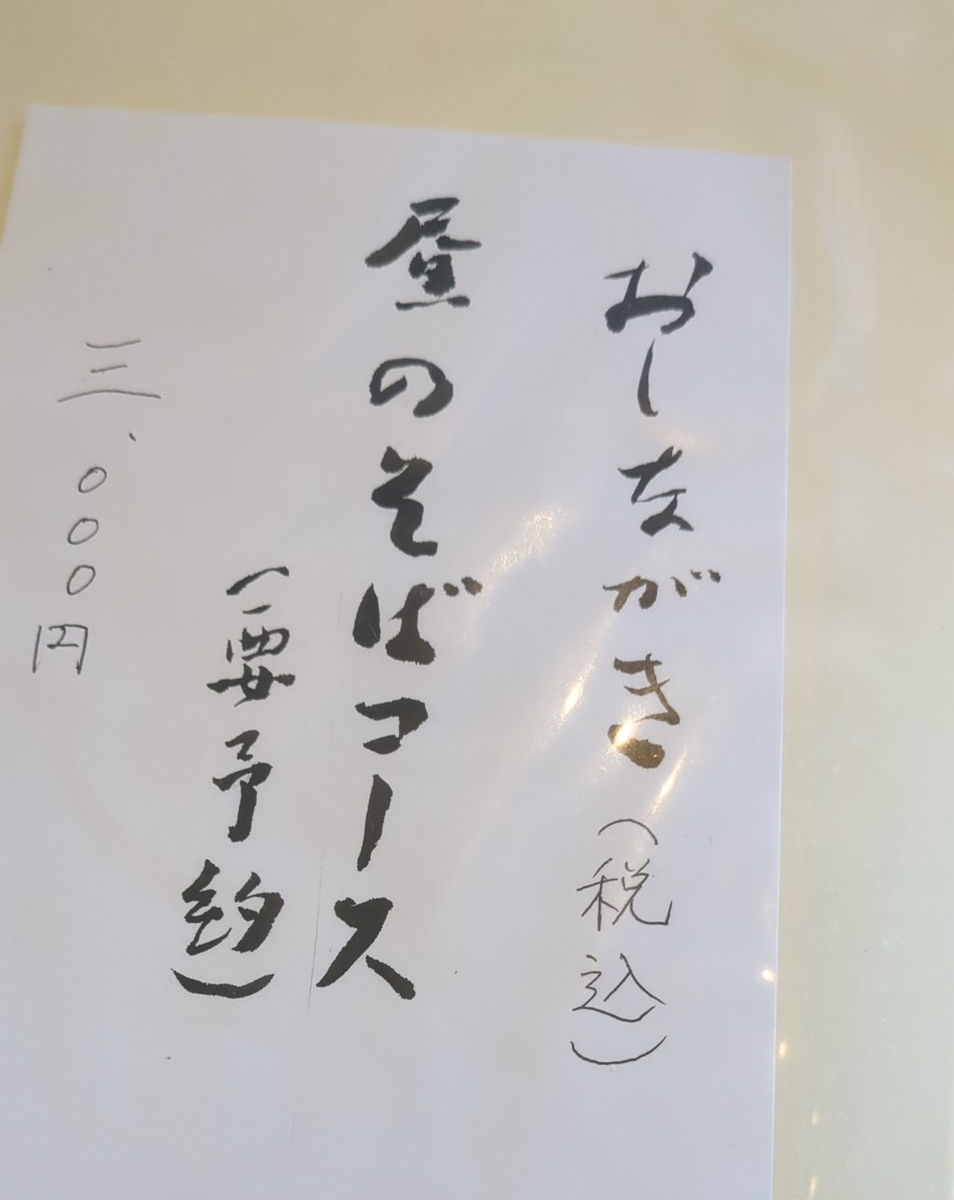 おしながき（税込）
昼のそばコース
（要予約）
三、〇〇〇円